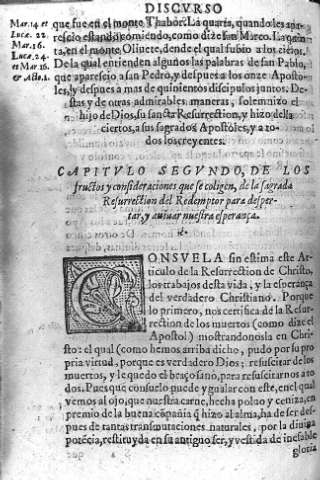 DISCVRSO
Mar.14. et
Lucæ. 22.
Mar.16.
Lucæ.24.
et Mar.16
& Acto.1.
que fue en el monte Thabor. La quarta, quando les apa-
recio estando comiendo, como dize San Marco. La quin-
ta, en el monte Oliuete, dende el qual subio a los cielos.
De la qual entienden algunos las palabras de san Pablo,
que aparescio a san Pedro, y despues a los onze Aposto-
les, y despues a mas de quinientos discipulos juntos. De-
stas y de otras admirables maneras, solemnizo el
hijo de Dios, su sancta Resurrection, y hizo della
ciertos, a sus sagrados Apostoles, y a to-
dos los creyentes.
CAPITVLO SEGVNDO, DE LOS
fructos y consideraciones que se coligen, de la sagrada
Resurrection del Redemptor para desper-
tar, y auiuar nuestra esperança.
CONSVELA sin estima este Ar
ticulo de la Resurrection de Christo,
los trabajos desta vida, y la esperança
del verdadero Christiano. Porque
lo primero, nos certifica de la Resur-
rection de los muertos (como dize el
Apostol) mostrandonosla en Chri-
sto: el qual (como hemos arriba dicho, pudo por su pro
pria virtud, porque es verdadero Dios; resuscitar de los
muertos, y le quedo el braço sano, para resuscitarnos a to
dos. Pues que consuelo puede ygualar con este, en el qual
vemos al ojo, que nuestra carne, hecha poluo y ceniza, en
premio de la buena cõpañia q̃ hizo al alma, ha de ser des-
pues de tantas transmutaciones naturales, por la diuina
potẽcia, restituyda en su antiguo ser, y vestida de inefable
gloria